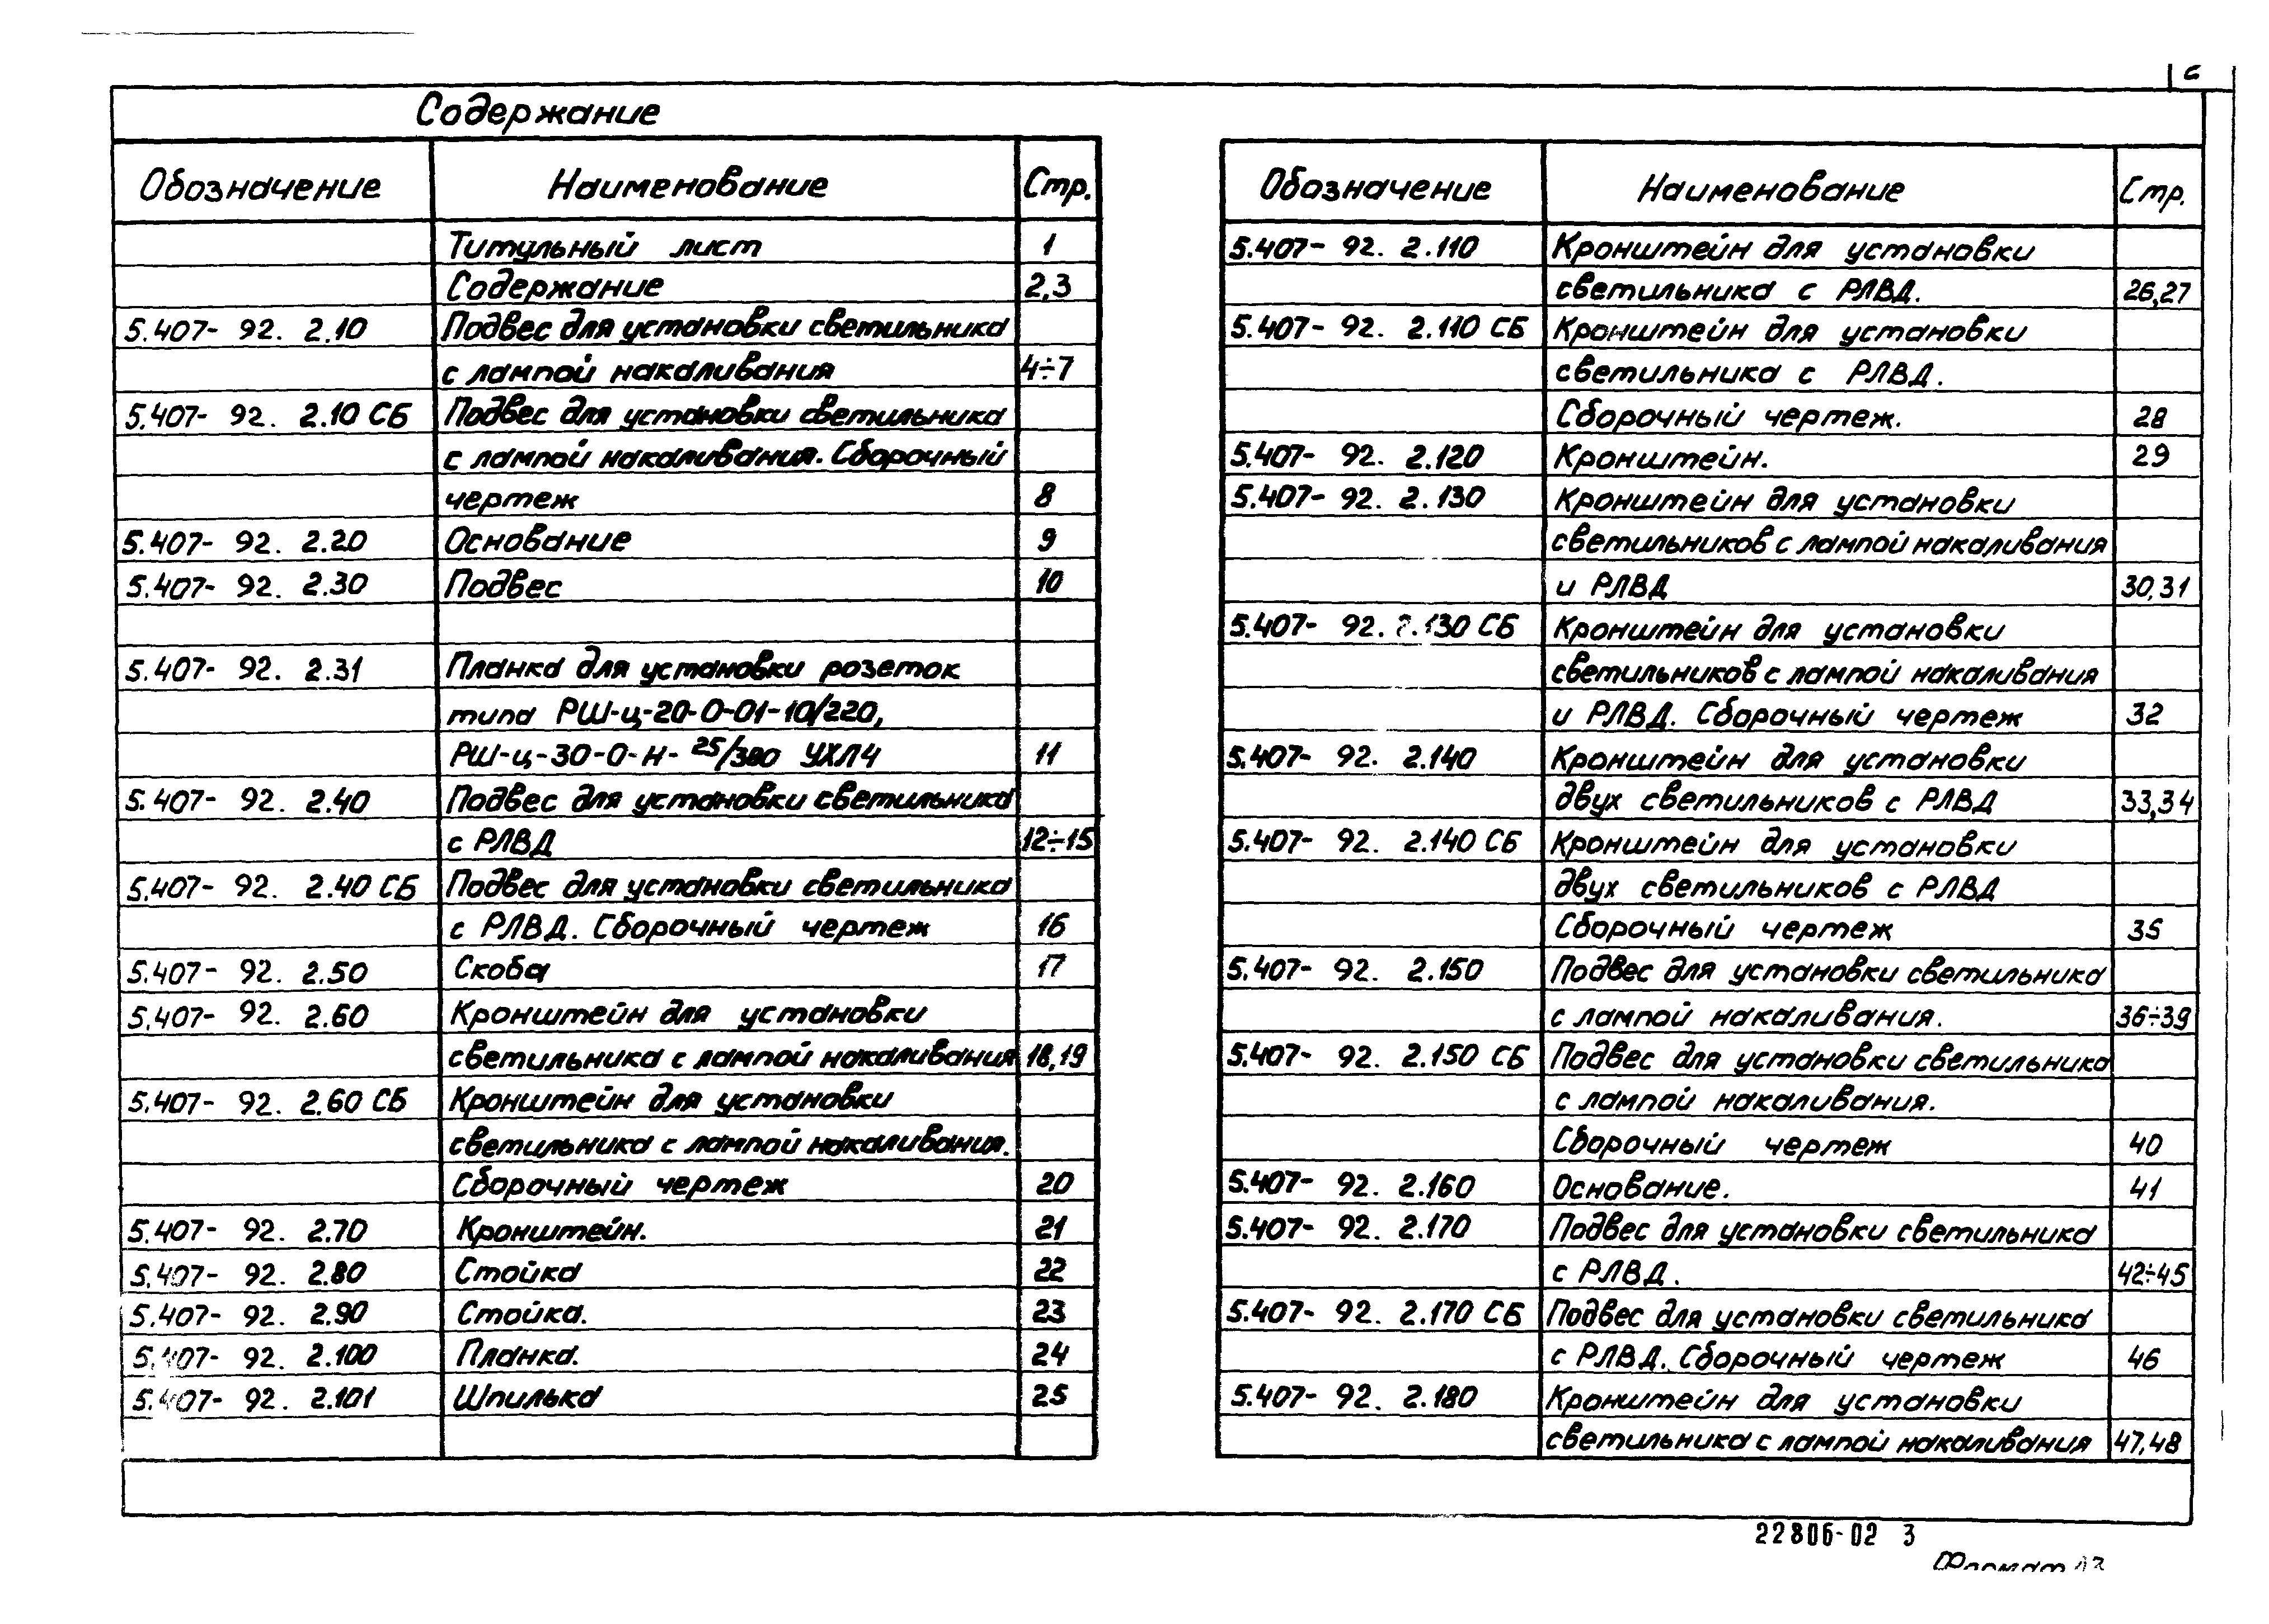 2
Содержание
Обозначение Наименование Стр.
Титульный лист 1
Содержание 2,3
5.407- 92. 2.10 Подвес для установки светильника
с лампой накаливания 4÷7
5.407- 92. 2.10 СБ Подвес для установки светильника
с лампой накаливания. Сборочный
чертеж 8
5.407- 92. 2.20 Основание 9
5.407- 92. 2.30 Подвес 10
5.407- 92. 2.31 Планка для установки розеток
типа РШ-ц-20-0-01-10/220,
РШ-ц-30-0-Н- 25/380 УХЛ4 11
5.407- 92. 2.40 Подвес для установки светильника
с РЛВД 12÷15
5.407- 92. 2.40 СБ Подвес для установки светильника
с РЛВД. Сборочный чертеж 16
5.407- 92. 2.50 Скоба 17
5.407- 92. 2.60 Кронштейн для установки
светильника с лампой накаливания 18,19
5.407- 92. 2.60 СБ Кронштейн для установки
светильника с лампой накаливания.
Сборочный чертеж 20
5.407- 92. 2.70 Кронштейн. 21
5.407- 92. 2.80 Стойка 22
5.407- 92. 2.90 Стойка. 23
5.407- 92. 2.100 Планка. 24
5.407- 92. 2.101 Шпилька 25
Обозначение Наименование Стр.
5.407- 92. 2.110 Кронштейн для установки
светильника с РЛВД. 26,27
5.407- 92. 2.110 СБ Кронштейн для установки
светильника с РЛВД.
Сборочный чертеж. 28
5.407- 92. 2.120 Кронштейн. 29
5.407- 92. 2.130 Кронштейн для установки
светильников с лампой накаливания
и РЛВД 30,31
5.407- 92. 2.130 СБ Кронштейн для установки
светильников с лампой накаливания
и РЛВД. Сборочный чертеж 32
5.407- 92. 2.140 Кронштейн для установки
двух светильников с РЛВД 33,34
5.407- 92. 2.140 СБ Кронштейн для установки
двух светильников с РЛВД
Сборочный чертеж 35
5.407- 92. 2.150 Подвес для установки светильника
с лампой накаливания. 36÷39
5.407- 92. 2.150 СБ Подвес для установки светильника
с лампой накаливания.
Сборочный чертеж 40
5.407- 92. 2.160 Основание. 41
5.407- 92. 2.170 Подвес для установки светильника
с РЛВД. 42÷45
5.407- 92. 2.170 СБ Подвес для установки светильника
с РЛВД. Сборочный чертеж 46
5.407- 92. 2.180 Кронштейн для установки
светильника с лампой накаливания 47,48
22806-02 3
Формат А3